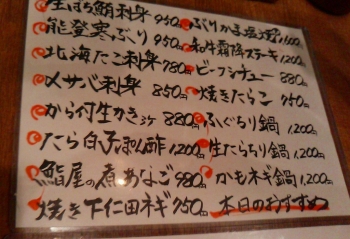 生ばち鮪刺身 950円
能登寒ぶり 950円
北海たこ刺身 780円
〆サバ刺身 850円
から付生かき 880円
たら白子ぽん酢 1,200円
鮨屋の煮あなご 980円
焼き下仁田ネギ 750円
ぶりかま塩焼
和牛霜降ステーキ 1,200円
ビーフシチュー 880円
焼きたらこ 750円
ふぐちり鍋 1,200円
生たらちり鍋 1,200円
かもネギ鍋 1,200円
本日のおすすめ